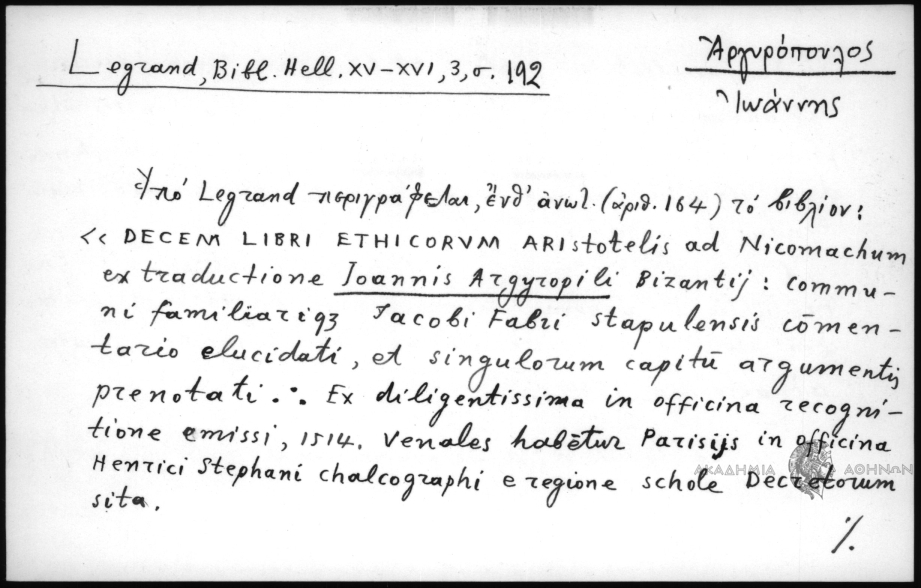 Legrand, Bibl. Hell. XV-XVI, 3, σ. 192
Ἀργυρόπουλος
Ἰωάννης
Ὑπό Legrand περιγράφεται, ἔνθ' ἀνωτ. (ἀριθ. 164) τό βιβλίον:
<< DECEM LIBRI ETHICORVM ARIstotelis ad Nicomachum
ex traductione Joannis Argyropili Bizantij: commu-
ni familiariqꝫ Jacobi Fabri stapulensis cōmen-
tario elucidati, et singulorum capitū argumentis
prenotati ∴ Ex diligentissima in officina recogni-
tione emissi, 1514. Venales habētur Parisijs in officina
Henrici Stephani chalcographi e regione schole Decretorum
sita.
ΑΚΑΔΗΜΙΑ ΑΘΗΝΩΝ
./.